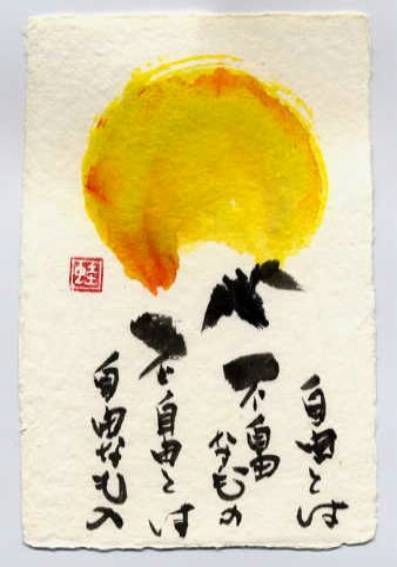 自由とは
不自由なもの
不自由とは
自由なもの
蛙